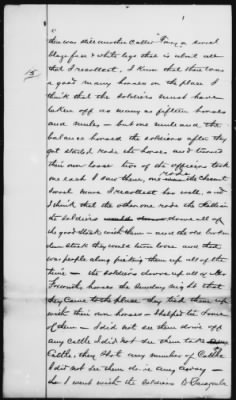 there was still another called "Fancy" a sorrel
blaze face & white legs that is about all
that I recollect, I know that there was
15
a good many horses on the place I
think that the soldiers must have
taken off as many as fifteen horses
and mules - but one mule and the
balance horses the soldiers after they
got started rode the horses and turned
their own loose two of the officers took
one each I saw them, one rode the
sorrel mare I recollect her well, and
I think that the other one rode the
the soldiers drove all up
the good stock with them - and the old broken
down stock they would turn loose and there
was people along picking them up all of the
time - the soldiers drove up all of Mr
horses the Sunday night that
they came to the place - they tied them up
with their own horses - I helped tie some
of them - I did not see them drive off
any cattle I did not see them take any
cattle, they shot any number of cattle
I did not see them drive any away -
I went with the soldiers to